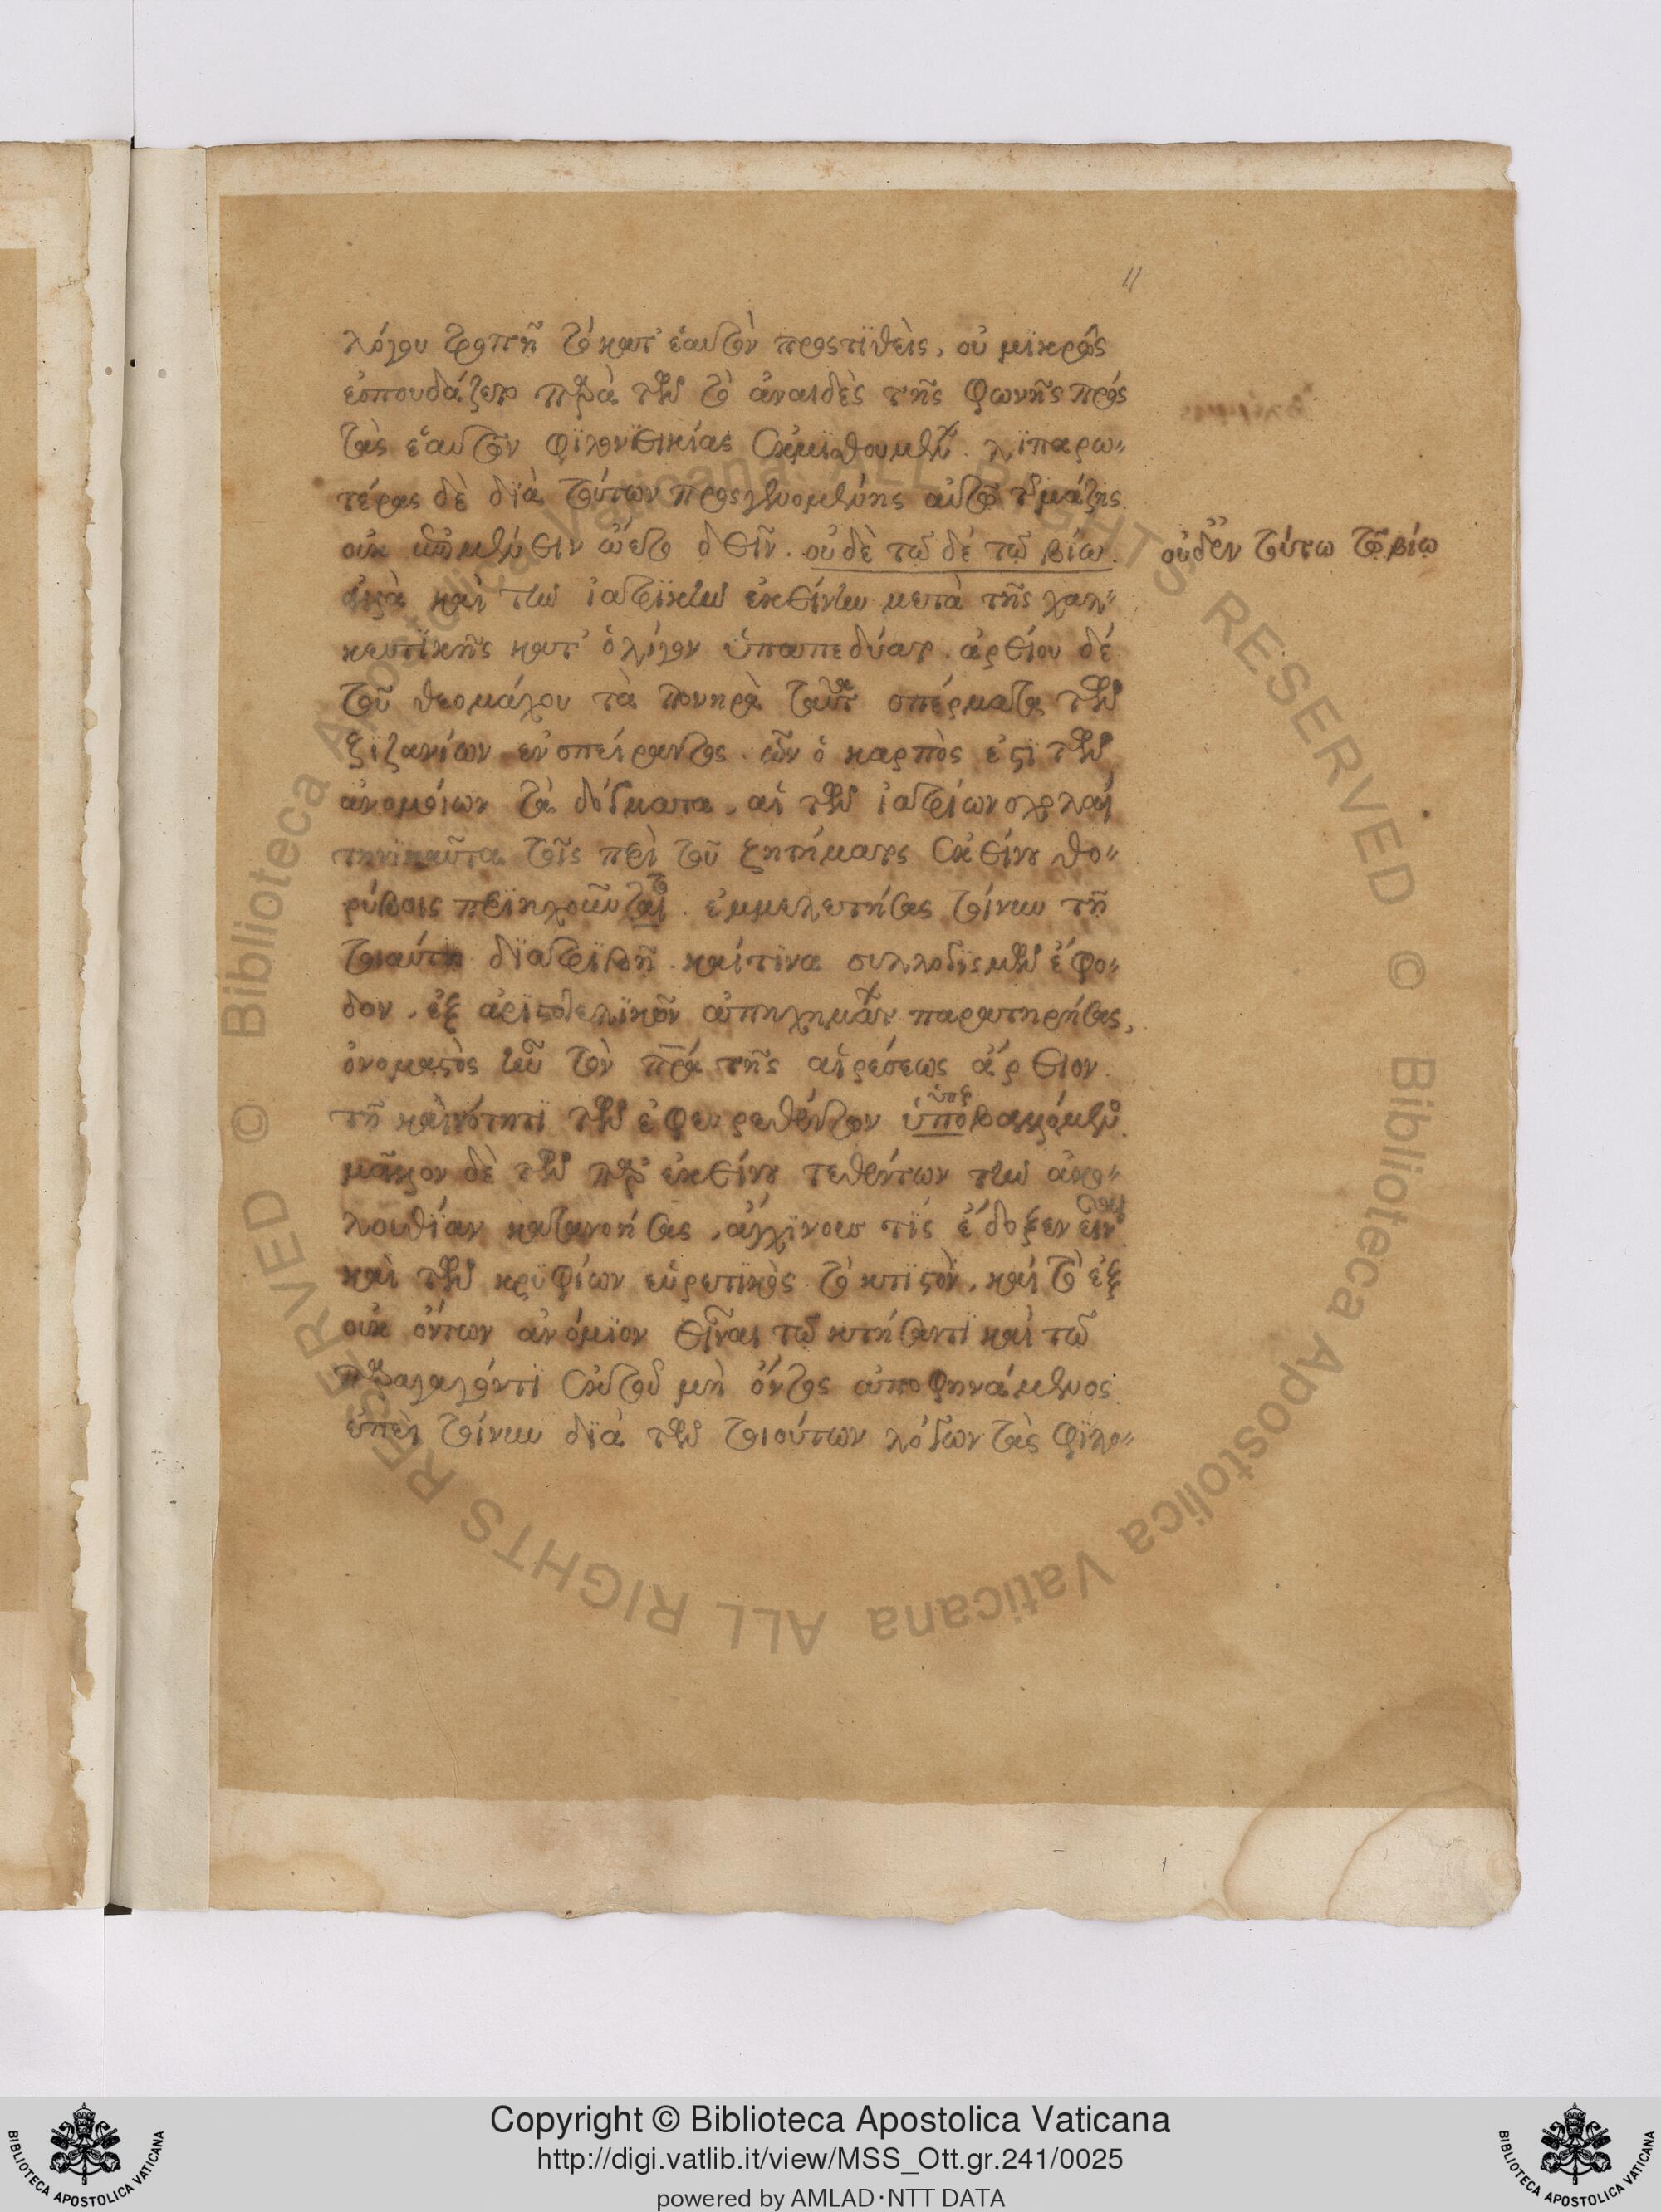 11
λόγου τροπῇ τὸ κατ' ἑαυτὸν προστιθεὶς, οὐ μικρῶς
ἐσπουδάζετο παρὰ τῶν τὸ ἀναιδὲς τῆς φωνῆς πρὸς
τὰς ἑαυτῶν φιλονεικίας ἐκμισθουμένων. λιπαρω-
τέρας δὲ διὰ τούτων προσγενομένης αὐτῷ τῆς μάζης.
οὐκ ὑπομένειν ᾤετο δεῖν. οὐδὲ τῷ δὲ τῷ βίῳ.
οὐδὲν τούτω τῷ βίῳ
ἀλλὰ καὶ τὴν ἰατρικὴν ἐκείνην μετὰ τῆς χαλ-
κευτικῆς κατ' ὀλίγον ὑπαπεδύετο. ἀρείου δὲ
τοῦ θεομάχου τὰ πονηρὰ ταῦτα σπέρματα τῶν
ζιζανίων ἐνσπείραντος. ὧν ὁ καρπὸς ἐστι τῶν
ἀνομοίων τὰ δόγματα, αἱ τῶν ἰατρίων σχολαὶ
τηνικαῦτα τοῖς περὶ τοῦ ζητήματος ἐκείνου θο-
ρύβοις περιηχοῦνται. ἐμμελετήσας τοίνυν τῇ
τοιαύτῃ διατριβῇ. καί τινα συλλογισμῶν ἔφο-
δον, ἐξ ἀριστοτελικῶν ἀπηχημάτων παρατηρήσας,
ὀνομαστὸς ἦν τὸν πατέρα τῆς αἱρέσεως ἄρειον.
τῇ καινότητι τῶν ἐφευρεθέντων ὑποβαλλόμενος
ὑπερ
μᾶλλον δὲ τῶν παρ' ἐκείνου τεθέντων τὴν ἀκο-
λουθίαν κατανοήσας, ἀγχίνους τίς ἔδοξεν εἶναι
καὶ τῶν κρυφίων εὑρετικὸς. τὸ κτιστὸν, καὶ τὸ ἐξ
οὐκ ὄντων ἀνόμοιον εἶναι τῷ κτήσαντι καὶ τῷ
παραγαγόντι ἐκ τοῦ μὴ ὄντος ἀποφηνάμενος
ἐπεὶ τοίνυν διὰ τῶν τοιούτων λόγων τὰς φιλο-
© Biblioteca Apostolica Vaticana ALL RIGHTS RESERVED © Biblioteca Apostolica Vaticana ALL RIGHTS RESERVED
BIBLIOTECA APOSTOLICA VATICANA
Copyright © Biblioteca Apostolica Vaticana
http://digi.vatlib.it/view/MSS_Ott.gr.241/0025
powered by AMLAD·NTT DATA
BIBLIOTECA APOSTOLICA VATICANA